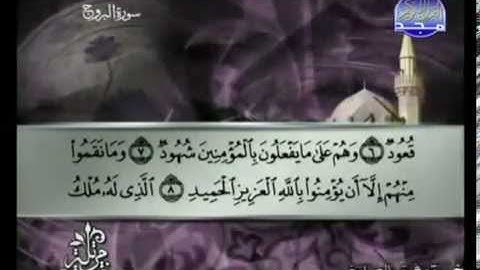 سورة البروج
المجد
قُعُودٌ ٦ وَهُمْ عَلَىٰ مَا يَفْعَلُونَ بِالْمُؤْمِنِينَ شُهُودٌ ٧ وَمَا نَقَمُوا
مِنْهُمْ إِلَّا أَن يُؤْمِنُوا بِاللَّهِ الْعَزِيزِ الْحَمِيدِ ٨ الَّذِي لَهُ مُلْكُ